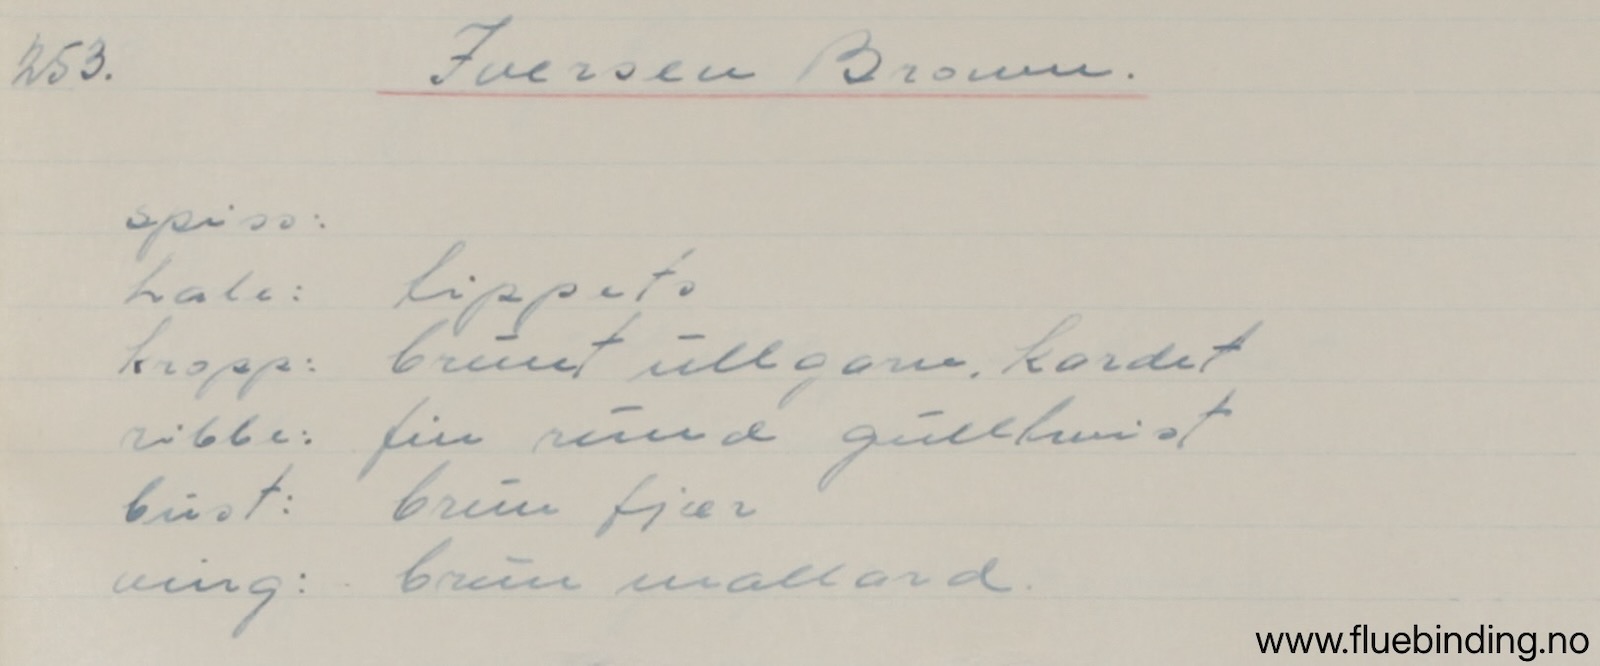 253. Iversen Brown.
spiss:
hale: tippets
kropp: brunt ullgarn, kardet
ribbe: fin rund gulltwist
bust: brun fjær
ving: brun mallard.
www.fluebinding.no